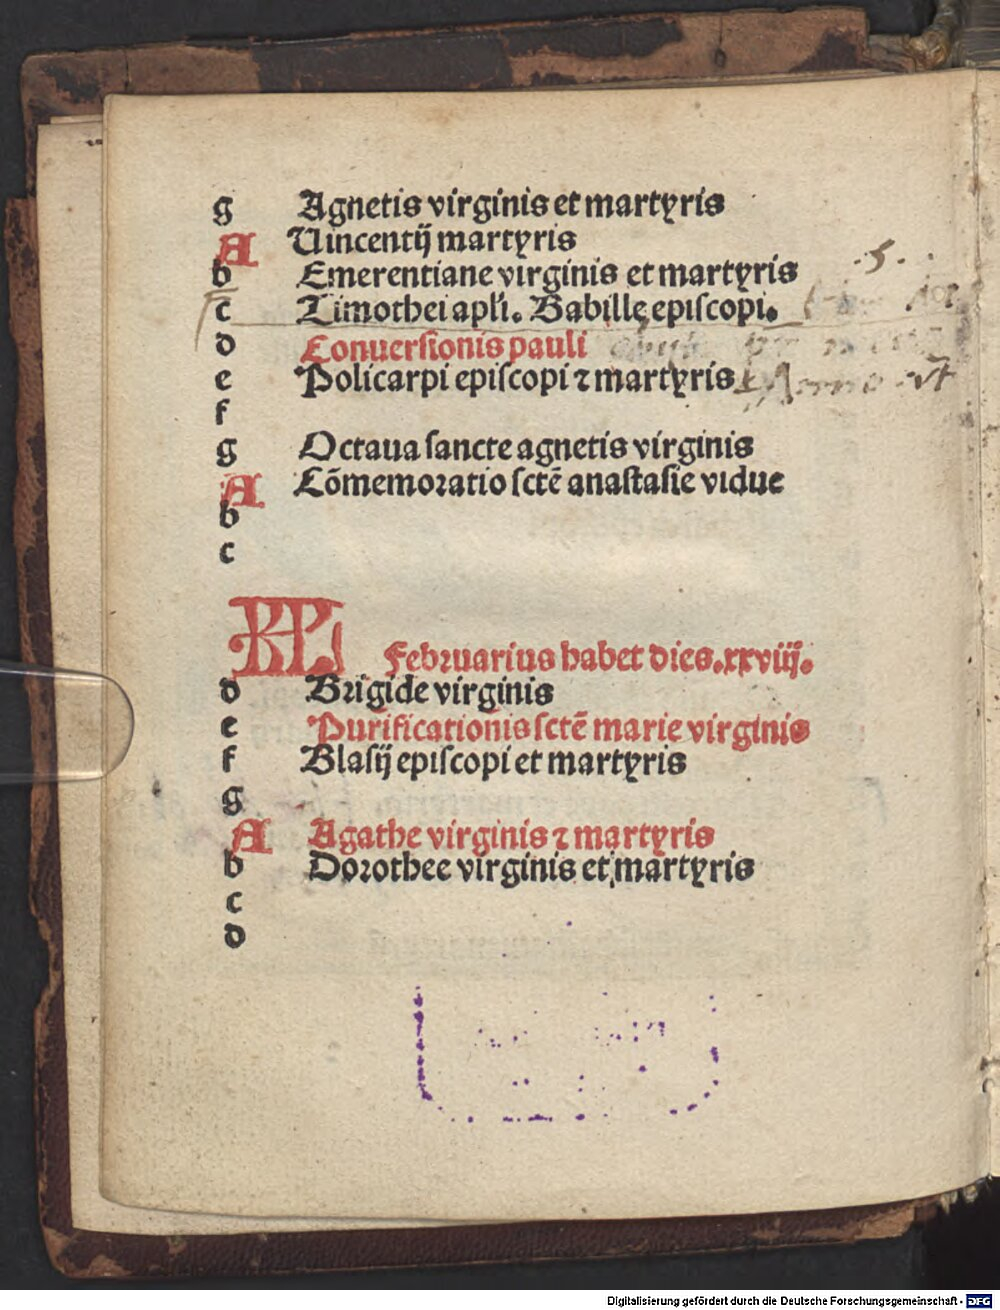 g Agnetis virginis et martyris
A Uincentij martyris
b Emerentiane virginis et martyris
.5.
c Timothei apłi. Babillę episcopi.
d Conuersionis pauli
e Policarpi episcopi ⁊ martyris
f
g Octaua sancte agnetis virginis
A Cōmemoratio sctē anastasie vidue
b
c
KL Februarius habet dies.xxviij.
d Brigide virginis
e Purificationis sctē marie virginis
f Blasij episcopi et martyris
g
A Agathe virginis ⁊ martyris
b Dorothee virginis et martyris
c
d
Digitalisierung gefördert durch die Deutsche Forschungsgemeinschaft - DFG